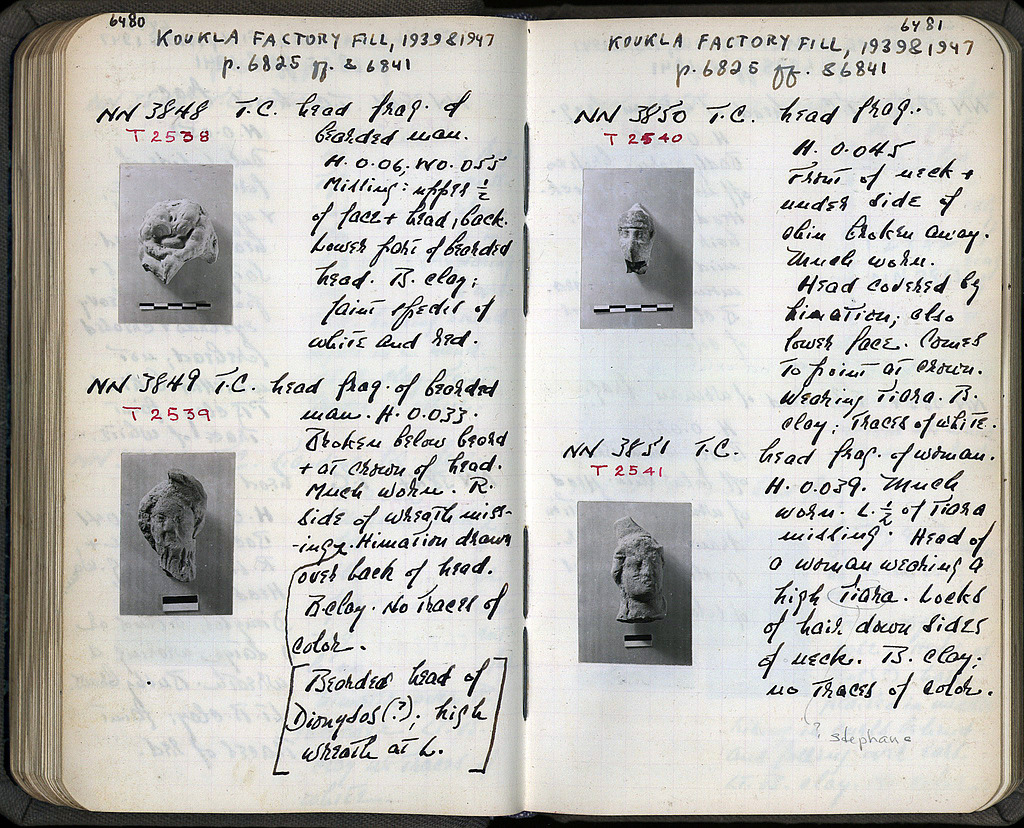 6480
KOUKLA FACTORY FILL, 1939 & 1947
p. 6825 ff. & 6841
NN 3848 T.C. head frag. of
T 2538
bearded man.
H. 0.06; W 0.055
Missing: upper ½
of face + head; back.
Lower part of bearded
head. B. clay;
faint specks of
white and red.
NN 3849 T.C. head frag. of bearded
T 2539
man. H. 0.033.
Broken below beard
+ at crown of head.
Much worn. R.
side of wreath miss-
-ing. Himation drawn
over back of head.
B. clay. No traces of
color.
[Bearded head of
Dionysos(?); high
wreath at L.]
6481
KOUKLA FACTORY FILL, 1939 & 1947
p. 6825 ff. & 6841
NN 3850 T.C. head frag.
T 2540
H. 0.045
Front of neck +
under side of
chin broken away.
Much worn.
Head covered by
himation; also
lower face. Comes
to point at crown.
Wearing Tiara. B.
clay; Traces of white.
NN 3851 T.C. head frag. of woman.
T 2541
H. 0.039. Much
worn. L. ½ of Tiara
missing. Head of
a woman wearing a
high Tiara. Locks
of hair down sides
of neck. B. clay;
no Traces of color.
? stephane